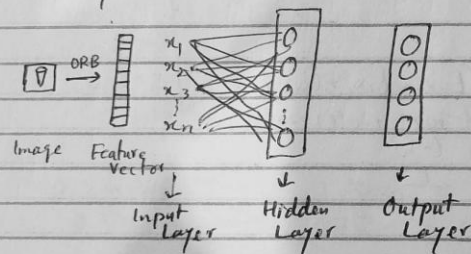 ORB
x1
x2
x3
⋮
xn
Image
Feature
Vector
Input
Layer
Hidden
Layer
Output
Layer